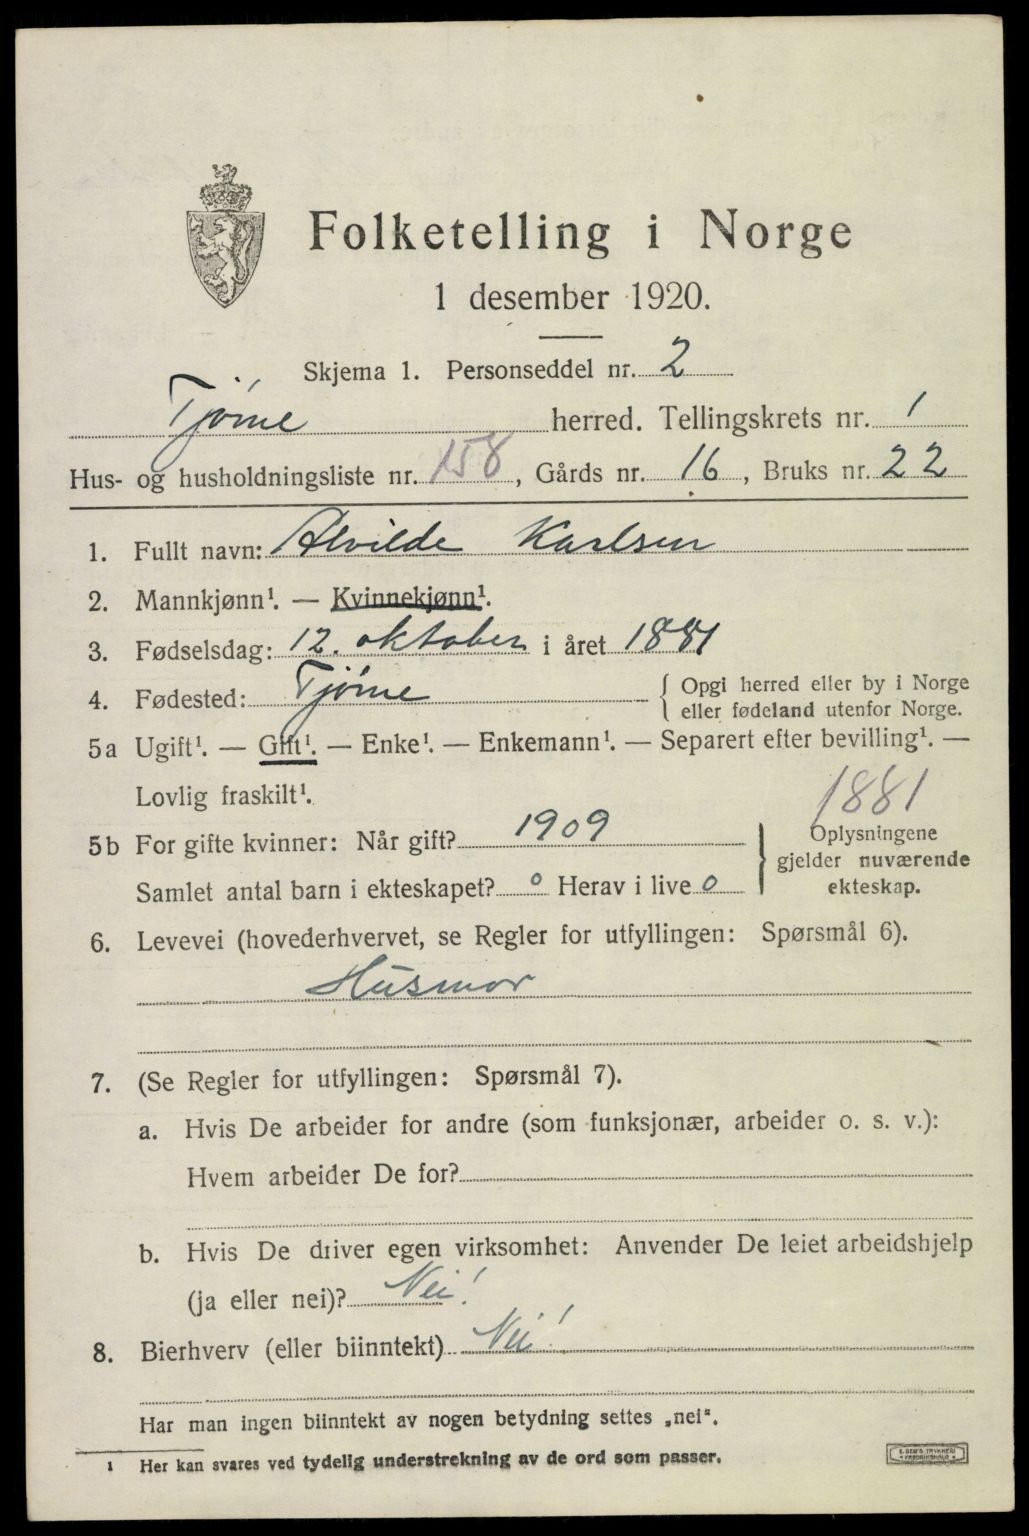 Folketelling i Norge
1 desember 1920.
Skjema 1. Personseddel nr. 2
Tjöme herred. Tellingskrets nr. 1
Hus- og husholdningsliste nr. 158, Gårds nr. 16, Bruks nr. 22
1. Fullt navn: Alvilde Karlsen
2. Mannkjønn¹. — Kvinnekjønn¹.
3. Fødselsdag: 12. oktober i året 1881
4. Fødested: Tjöme { Opgi herred eller by i Norge
eller fødeland utenfor Norge.
5a Ugift¹. — Gift¹. — Enke¹. — Enkemann¹. — Separert efter bevilling¹. —
Lovlig fraskilt¹.
1881
5b For gifte kvinner: Når gift? 1909
Samlet antal barn i ekteskapet? 0 Herav i live 0
} Oplysningene
gjelder nuværende
ekteskap.
6. Levevei (hovederhvervet, se Regler for utfyllingen: Spørsmål 6).
Husmor
7. (Se Regler for utfyllingen: Spørsmål 7).
a. Hvis De arbeider for andre (som funksjonær, arbeider o. s. v.):
Hvem arbeider De for?
b. Hvis De driver egen virksomhet: Anvender De leiet arbeidshjelp
(ja eller nei)? Nei!
8. Bierhverv (eller biinntekt) Nei!
Har man ingen biinntekt av nogen betydning settes „nei".
¹ Her kan svares ved tydelig understrekning av de ord som passer.